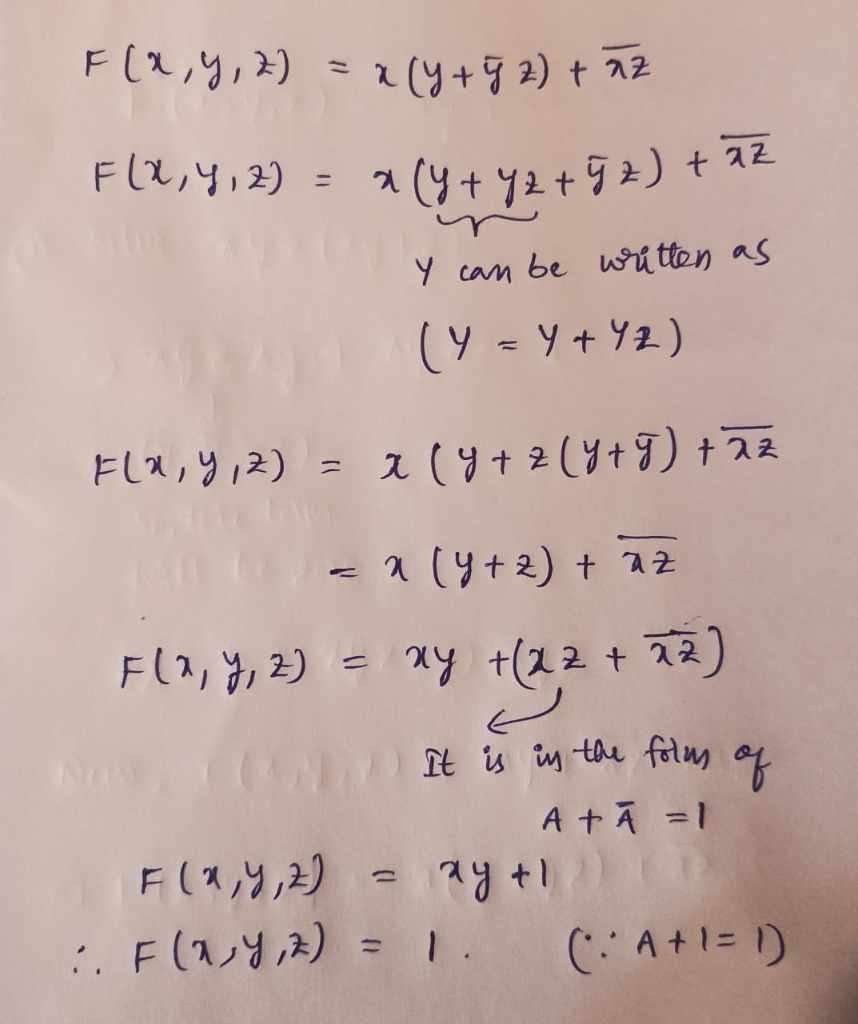 F(x,y,z) = x(y+ȳz) + x̅z̅
F(x,y,z) = x(y+yz+ȳz) + x̅z̅
y can be written as
(y = y + yz)
F(x,y,z) = x(y+z(y+ȳ) + x̅z̅
= x(y+z) + x̅z̅
F(x,y,z) = xy +(xz + x̅z̅)
It is in the form of
A + Ā = 1
F(x,y,z) = xy +1
∴ F(x,y,z) = 1. (∵ A+1=1)